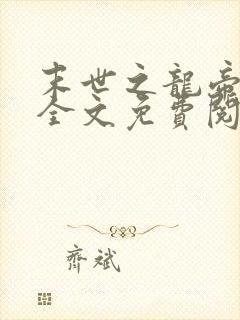 末世之龍帝
全文免費閱
齊斌